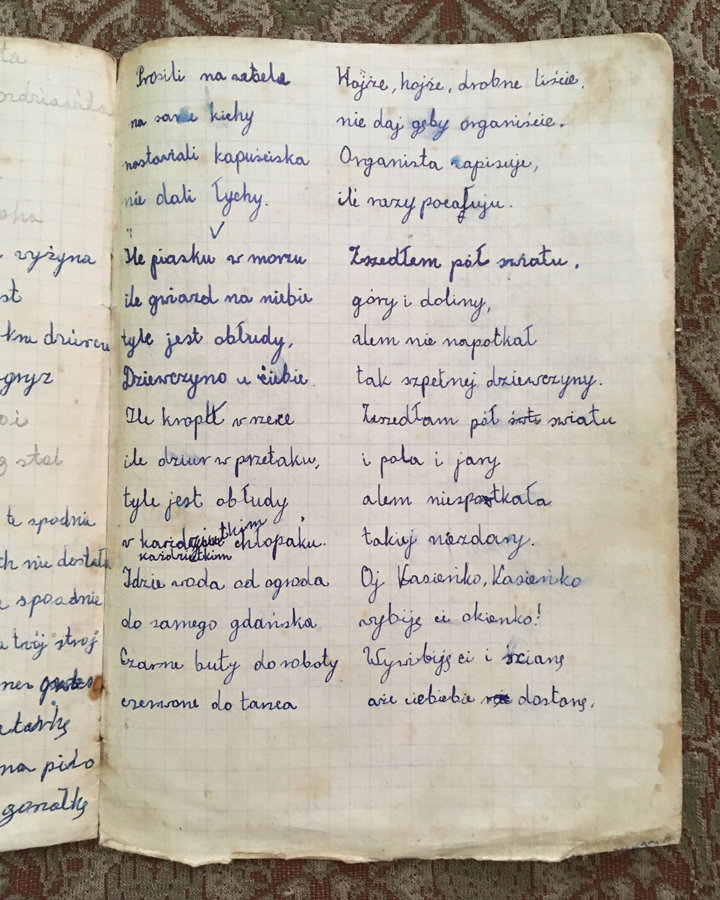 ta
vyżyna
st
kna dziewcze
gryz
oi
g stoi
te spodnie
ch nie dostała
e spoadnie
u twój stroj
ner
na piwo
gorzałkę
Prosili na wesele
na same kichy
nastawiali kapuściska
nie dali łychy.
Ile piasku w morzu
ile gwiazd na niebie
tyle jest obłudy,
Dziewczyno u ciebie.
Ile kropli w rzece
ile dziur w przetaku,
tyle jest obłudy
w każdziutkim chłopaku.
każdziutkim
Idzie woda od ogroda
do samego gdańska
Czarne buty do roboty
czerwone do tańca
Hojże, hojże, drobne liście,
nie daj gęby organiście.
Organista zapisuje,
ile razy pocałuju.
Zszedłem pół swiatu,
góry i doliny,
alem nie napotkał
tak szpetnej dziewczyny.
Zszedłam pół swiatu
i pola i jary
alem niespotkała
takiej niezdary.
Oj Kasieńko, Kasieńko
wybiję ci okienko!
Wywibiję ci i ścianę
aże ciebiebie dostanę,